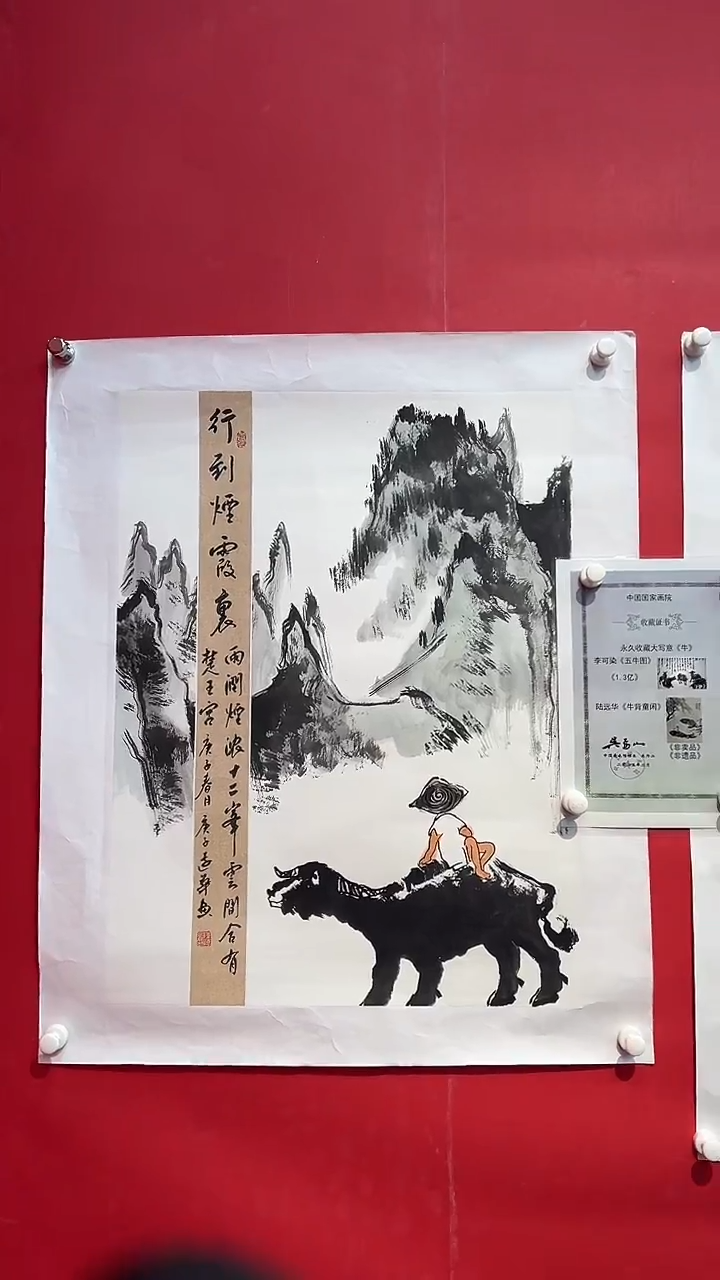 行到煙霞裏
雨澗煙波十二峯雲間合有
楚王宮 庚子春日 庚子遠華画
中国国家画院
收藏证书
永久收藏大写意《牛》
李可染《五牛图》
《1.3亿》
陆远华《牛背童闲》
《非卖品》
《非遗品》
吴为山